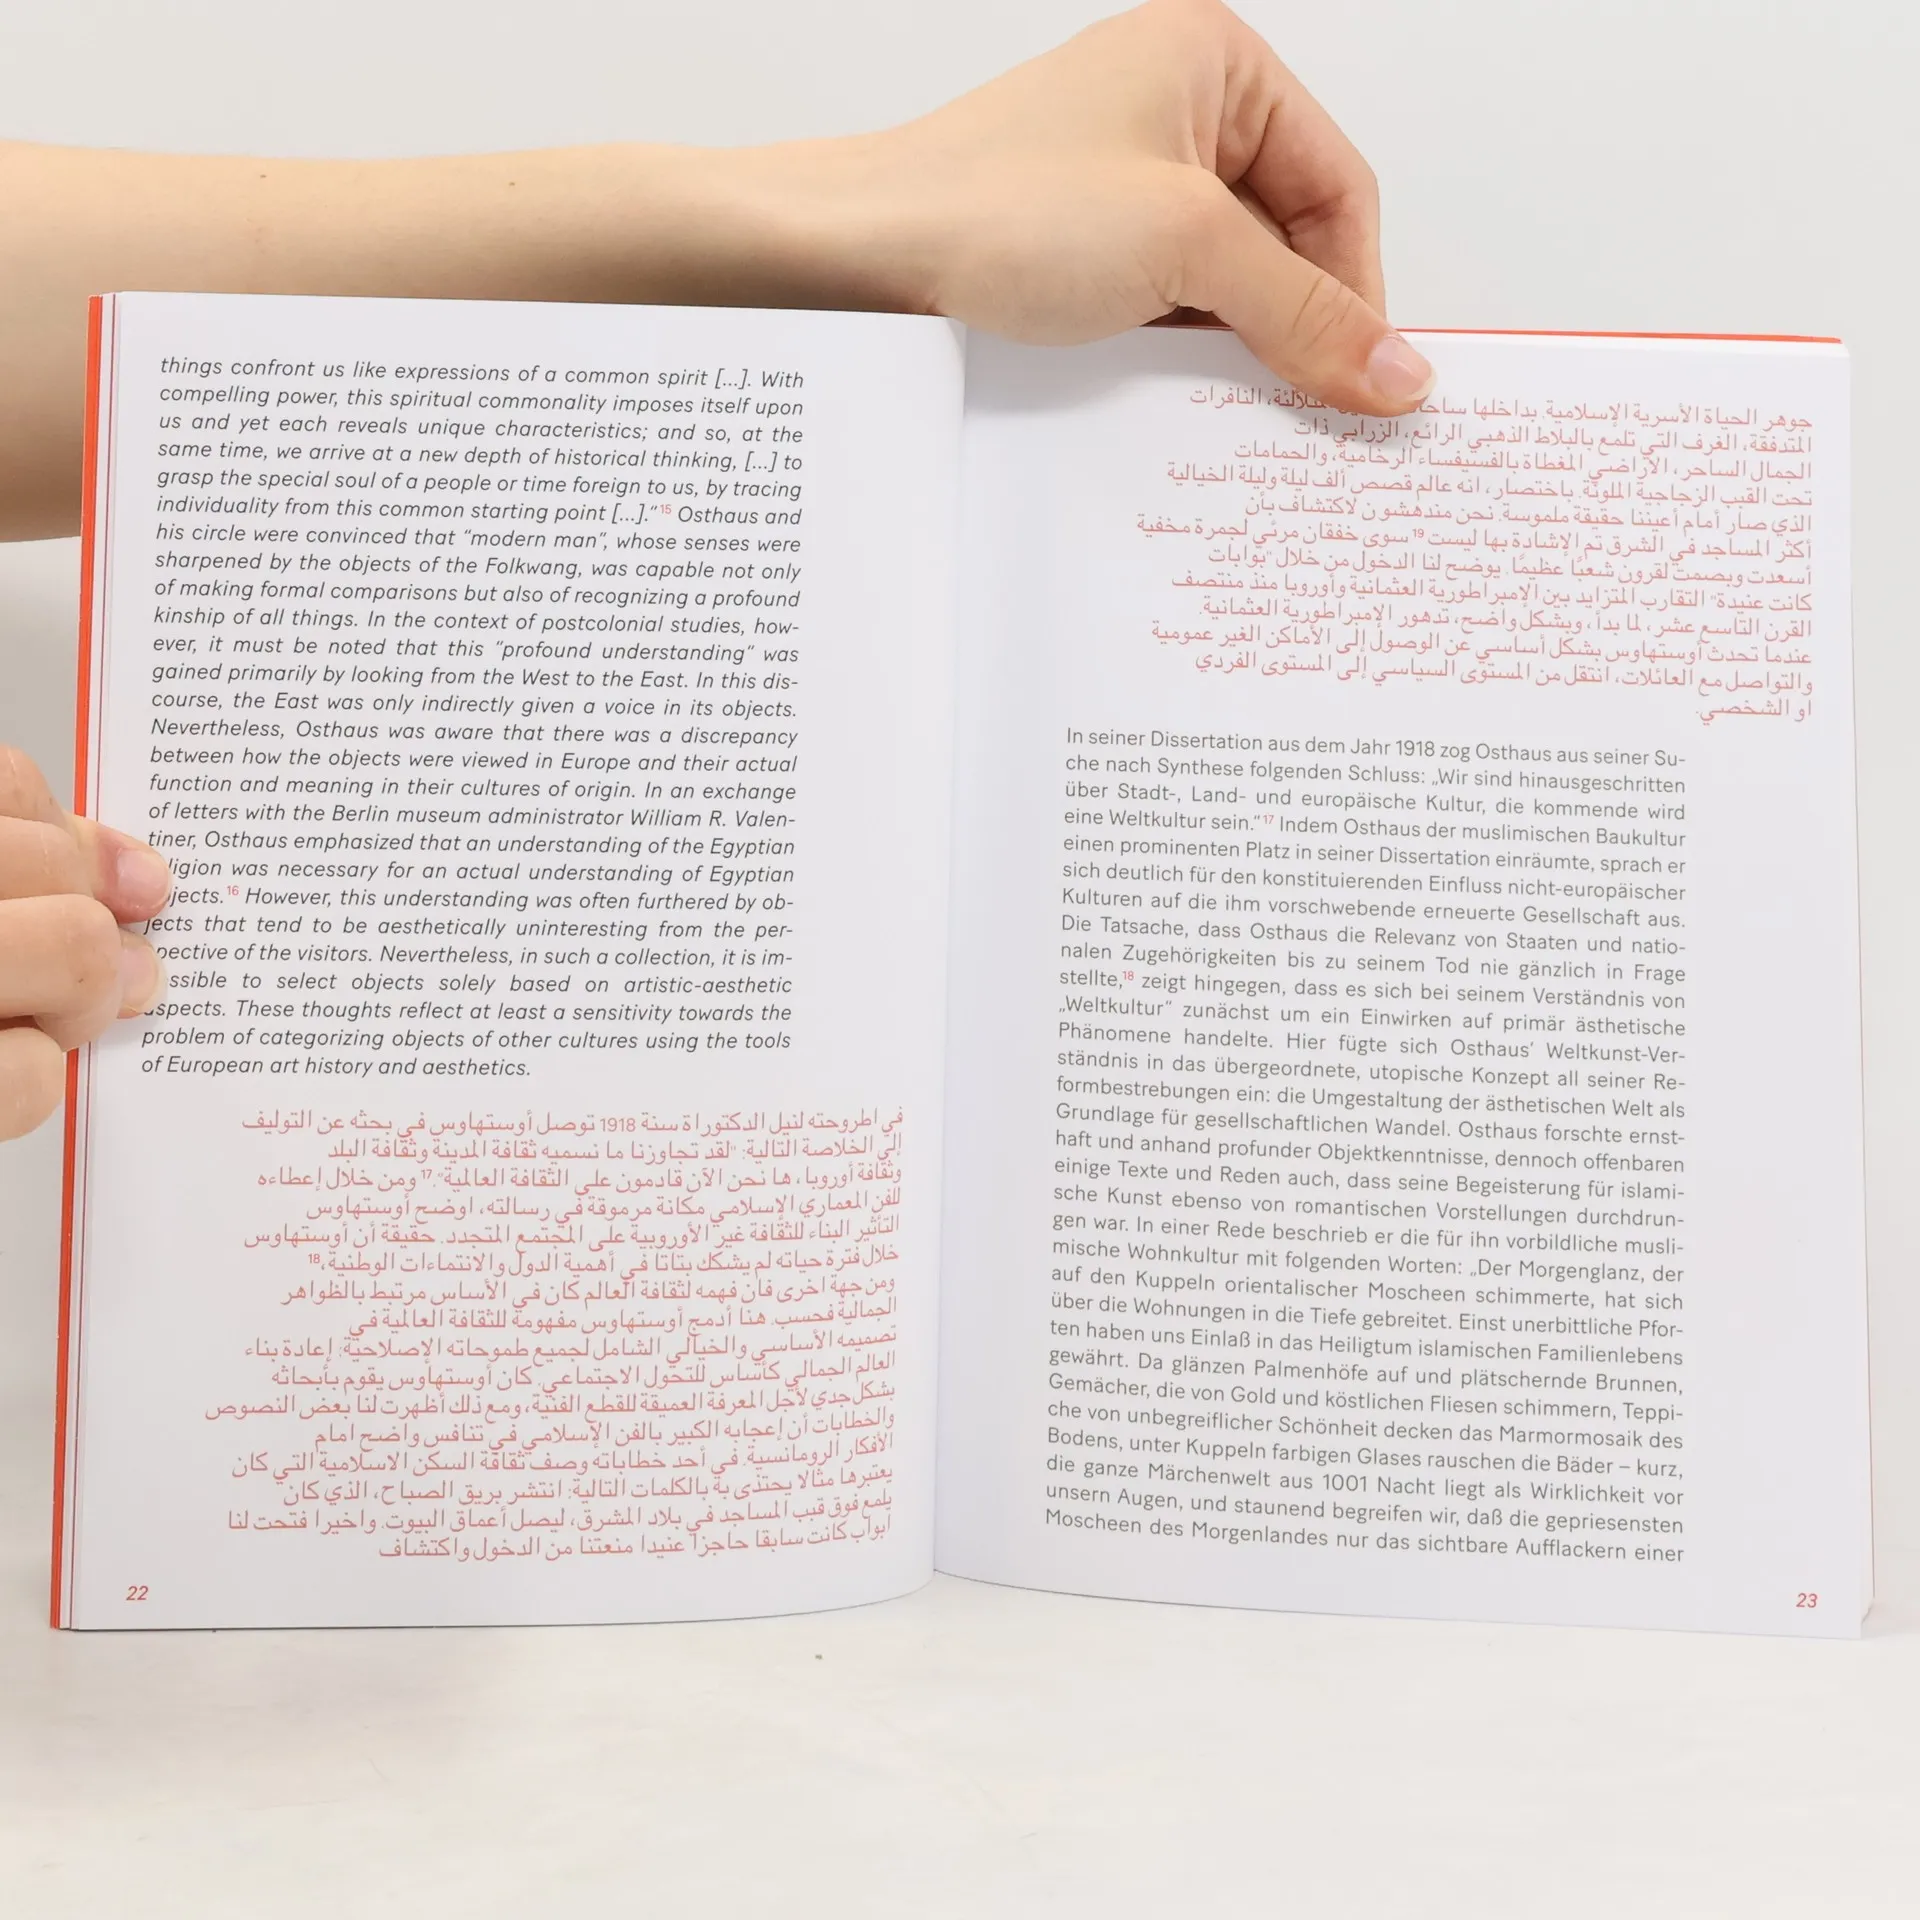 things confront us like expressions of a common spirit [...]. With
compelling power, this spiritual commonality imposes itself upon
us and yet each reveals unique characteristics; and so, at the
same time, we arrive at a new depth of historical thinking, [...] to
grasp the special soul of a people or time foreign to us, by tracing
individuality from this common starting point [...].“15 Osthaus and
his circle were convinced that “modern man”, whose senses were
sharpened by the objects of the Folkwang, was capable not only
of making formal comparisons but also of recognizing a profound
kinship of all things. In the context of postcolonial studies, how-
ever, it must be noted that this “profound understanding“ was
gained primarily by looking from the West to the East. In this dis-
course, the East was only indirectly given a voice in its objects.
Nevertheless, Osthaus was aware that there was a discrepancy
between how the objects were viewed in Europe and their actual
function and meaning in their cultures of origin. In an exchange
of letters with the Berlin museum administrator William R. Valen-
tiner, Osthaus emphasized that an understanding of the Egyptian
ligion was necessary for an actual understanding of Egyptian
jects.16 However, this understanding was often furthered by ob-
jects that tend to be aesthetically uninteresting from the per-
pective of the visitors. Nevertheless, in such a collection, it is im-
ssible to select objects solely based on artistic-aesthetic
aspects. These thoughts reflect at least a sensitivity towards the
problem of categorizing objects of other cultures using the tools
of European art history and aesthetics.
في اطروحته لنيل الدكتوراة سنة 1918 توصل أوستهاوس في بحثه عن التوليف
إلى الخلاصة التالية: "لقد تجاوزنا ما نسميه ثقافة المدينة وثقافة البلد
وثقافة أوروبا، ها نحن الآن قادمون على الثقافة العالمية".17 ومن خلال إعطاءه
للفن المعماري الإسلامي مكانة مرموقة في رسالته، اوضح أوستهاوس
التأثير البناء للثقافة غير الأوروبية على المجتمع المتجدد. حقيقة أن أوستهاوس
خلال فترة حياته لم يشكك بتاتا في أهمية الدول والانتماءات الوطنية،18
ومن جهة اخرى فان فهمه لثقافة العالم كان في الأساس مرتبط بالظواهر
الجمالية فحسب. هنا أدمج أوستهاوس مفهومه للثقافة العالمية في
تصميمه الأساسي والخيالي الشامل لجميع طموحاته الإصلاحية: إعادة بناء
العالم الجمالي كأساس للتحول الاجتماعي. كان أوستهاوس يقوم بأبحاثه
بشكل جدي لأجل المعرفة العميقة للقطع الفنية، ومع ذلك أظهرت لنا بعض النصوص
والخطابات أن إعجابه الكبير بالفن الإسلامي في تنافس واضح امام
الأفكار الرومانسية. في أحد خطاباته وصف ثقافة السكن الاسلامية التي كان
يعتبرها مثالا يحتذى به بالكلمات التالية: انتشر بريق الصباح، الذي كان
يلمع فوق قبب المساجد في بلاد المشرق، ليصل أعماق البيوت. واخيرا فتحت لنا
ابواب كانت سابقا حاجزا عنيدا منعتنا من الدخول واكتشاف
22
جوهر الحياة الأسرية الإسلامية. بداخلها النافرات
المتدفقة، الغرف التي تلمع بالبلاط الذهبي الرائع، الزرابي ذات
الجمال الساحر، الاراضي المغطاة بالفسيفساء الرخامية، والحمامات
تحت القبب الزجاجية الملونة. باختصار، انه عالم قصص ألف ليلة وليلة الخيالية
الذي صار أمام أعيننا حقيقة ملموسة. نحن مندهشون لاكتشاف بأن
أكثر المساجد في الشرق تم الإشادة بها ليست 19 سوى خفقان مرئي لجمرة مخفية
أسعدت وبصمت لقرون شعبًا عظيمًا. يوضح لنا الدخول من خلال "بوابات
كانت عنيدة" التقارب المتزايد بين الإمبراطورية العثمانية وأوروبا منذ منتصف
القرن التاسع عشر، لما بدأ، وبشكل واضح، تدهور الإمبراطورية العثمانية.
عندما تحدث أوستهاوس بشكل أساسي عن الوصول إلى الأماكن الغير عمومية
والتواصل مع العائلات، انتقل من المستوى السياسي إلى المستوى الفردي
او الشخصي.
In seiner Dissertation aus dem Jahr 1918 zog Osthaus aus seiner Su-
che nach Synthese folgenden Schluss: „Wir sind hinausgeschritten
über Stadt-, Land- und europäische Kultur, die kommende wird
eine Weltkultur sein.“17 Indem Osthaus der muslimischen Baukultur
einen prominenten Platz in seiner Dissertation einräumte, sprach er
sich deutlich für den konstituierenden Einfluss nicht-europäischer
Kulturen auf die ihm vorschwebende erneuerte Gesellschaft aus.
Die Tatsache, dass Osthaus die Relevanz von Staaten und natio-
nalen Zugehörigkeiten bis zu seinem Tod nie gänzlich in Frage
stellte,18 zeigt hingegen, dass es sich bei seinem Verständnis von
„Weltkultur“ zunächst um ein Einwirken auf primär ästhetische
Phänomene handelte. Hier fügte sich Osthaus’ Weltkunst-Ver-
ständnis in das übergeordnete, utopische Konzept all seiner Re-
formbestrebungen ein: die Umgestaltung der ästhetischen Welt als
Grundlage für gesellschaftlichen Wandel. Osthaus forschte ernst-
haft und anhand profunder Objektkenntnisse, dennoch offenbaren
einige Texte und Reden auch, dass seine Begeisterung für islami-
sche Kunst ebenso von romantischen Vorstellungen durchdrun-
gen war. In einer Rede beschrieb er die für ihn vorbildliche musli-
mische Wohnkultur mit folgenden Worten: „Der Morgenglanz, der
auf den Kuppeln orientalischer Moscheen schimmerte, hat sich
über die Wohnungen in die Tiefe gebreitet. Einst unerbittliche Pfor-
ten haben uns Einlaß in das Heiligtum islamischen Familienlebens
gewährt. Da glänzen Palmenhöfe auf und plätschernde Brunnen,
Gemächer, die von Gold und köstlichen Fliesen schimmern, Teppi-
che von unbegreiflicher Schönheit decken das Marmormosaik des
Bodens, unter Kuppeln farbigen Glases rauschen die Bäder – kurz,
die ganze Märchenwelt aus 1001 Nacht liegt als Wirklichkeit vor
unsern Augen, und staunend begreifen wir, daß die gepriesensten
Moscheen des Morgenlandes nur das sichtbare Aufflackern einer
23